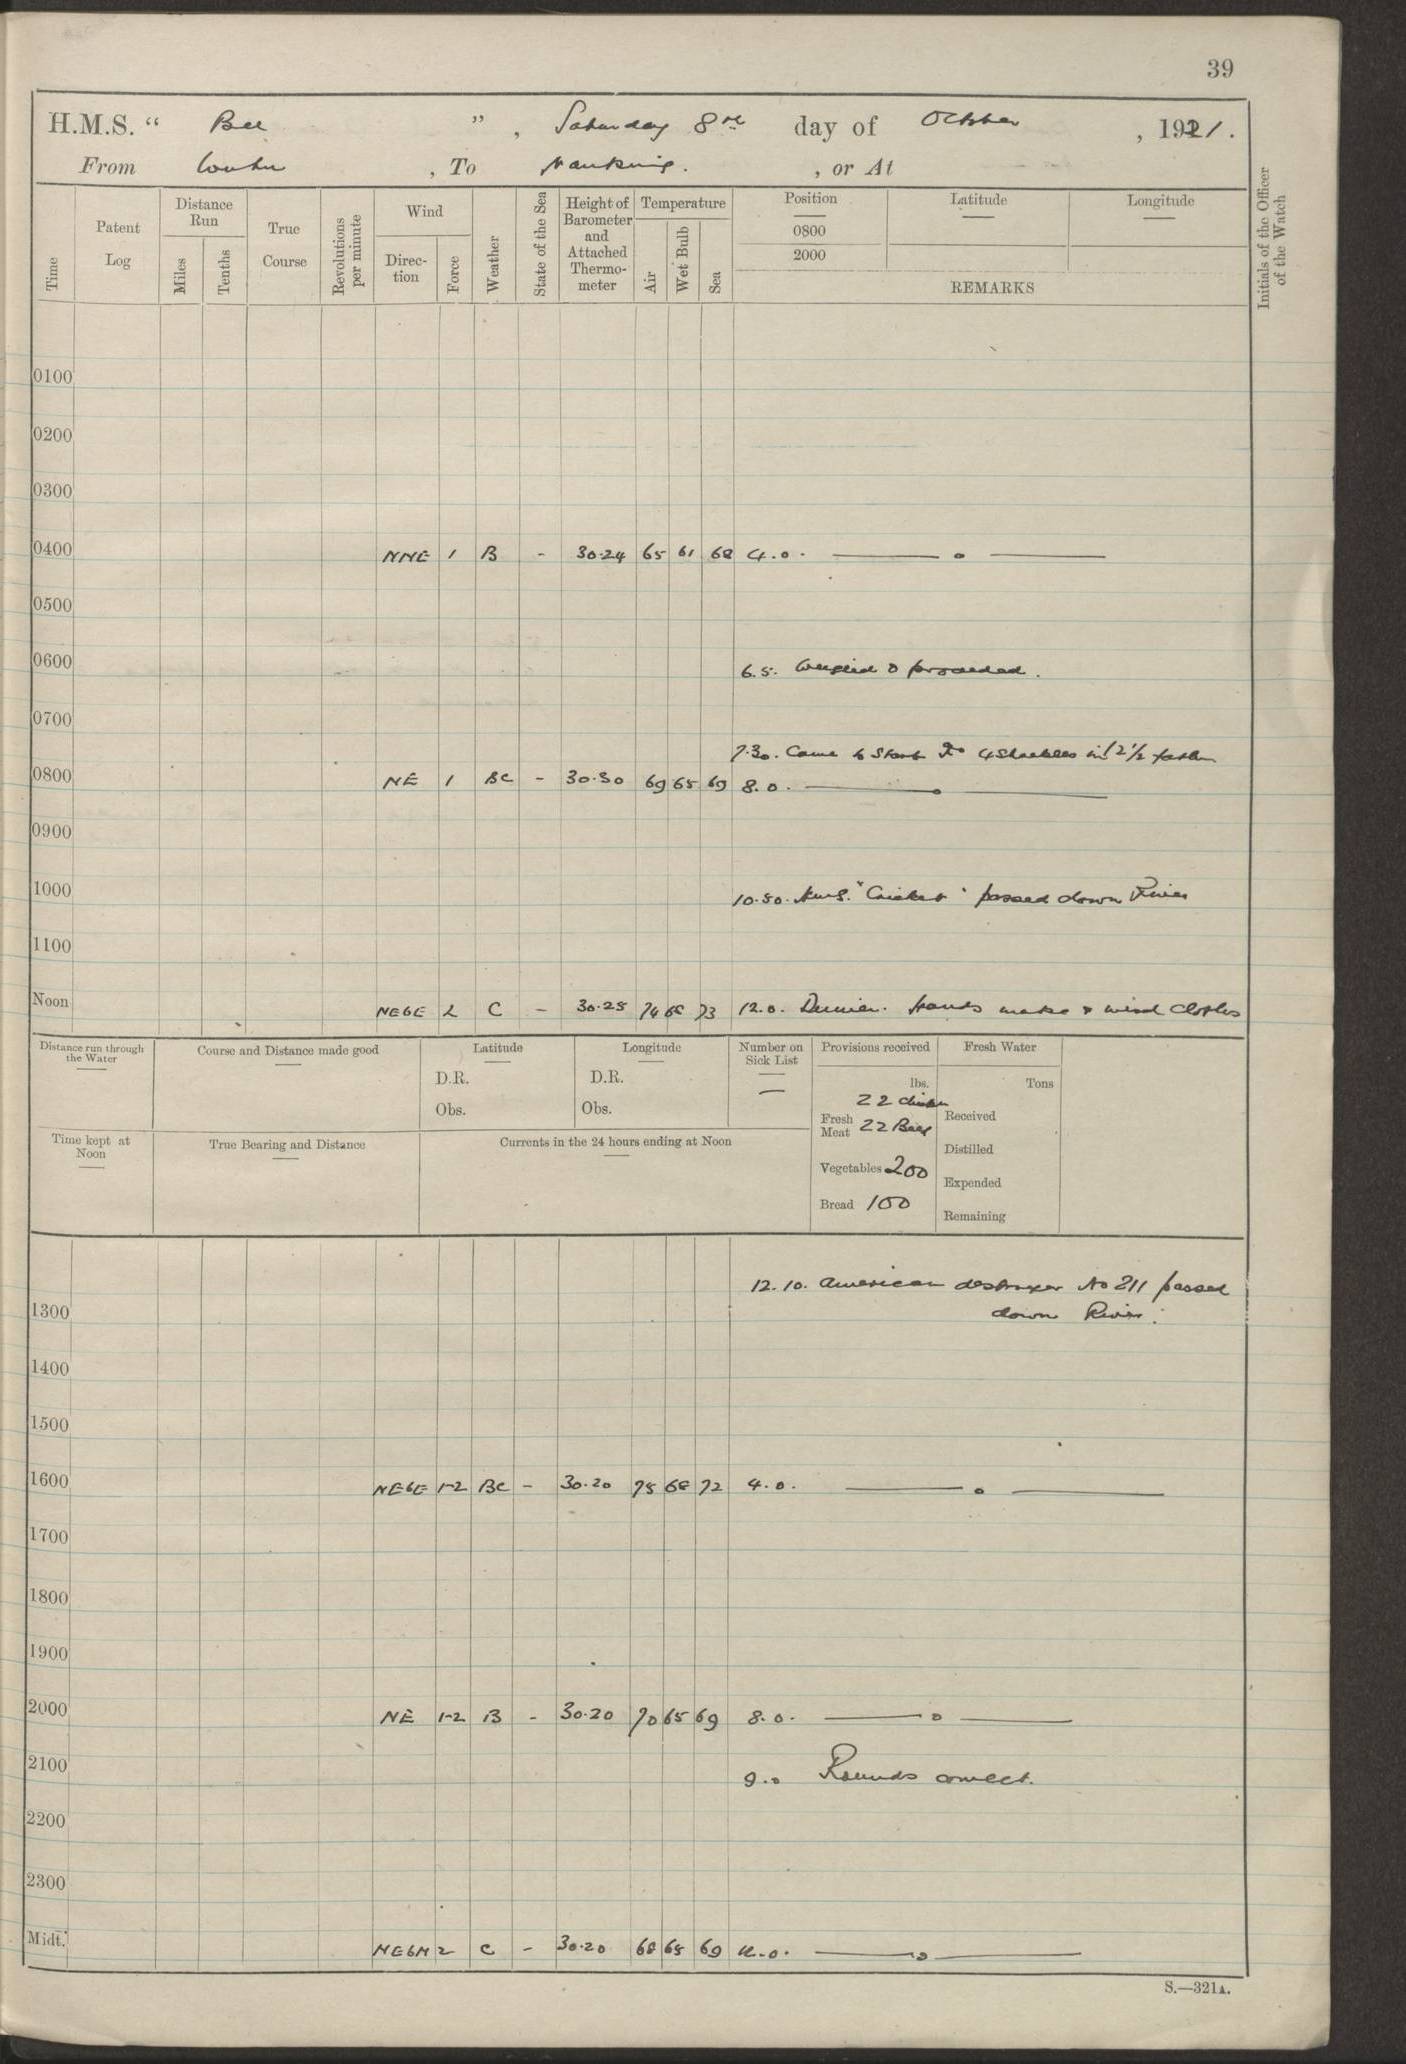 39
H.M.S. “ Bee ” , Saturday 8th day of October , 1921.
From Wuhu , To Nanking. , or At
Time
Patent Log
Distance Run
Miles
Tenths
True Course
Revolutions per minute
Wind
Direc-tion
Force
Weather
State of the Sea
Height of Barometer and Attached Thermo-meter
Temperature
Air
Wet Bulb
Sea
Position
0800
2000
Latitude
Longitude
REMARKS
Initials of the Officer of the Watch
0100
0200
0300
0400 NNE 1 B - 30.24 65 61 68 4.0.
0500
0600
6.5. Weighed & proceeded.
0700
7.30. Came to Starb 4 Shackles in 2½ fathm
0800 NE 1 BC - 30.30 69 65 69 8.0.
0900
1000
10.50. H.M.S. "Cricket" passed down River
1100
Noon NEbE 2 C - 30.25 74 68 73 12.0. Dinner. Hands make & mend Clothes
Distance run through the Water
Course and Distance made good
Latitude
D.R.
Obs.
Longitude
D.R.
Obs.
Number on Sick List
—
Provisions received
lbs.
22 chicken
Fresh Meat 22 Beef
Vegetables 200
Bread 100
Fresh Water
Tons
Received
Distilled
Expended
Remaining
Time kept at Noon
True Bearing and Distance
Currents in the 24 hours ending at Noon
12.10. American destroyer No 211 passed
down River.
1300
1400
1500
1600 NEbE 1-2 BC - 30.20 75 68 72 4.0.
1700
1800
1900
2000 NE 1-2 B - 30.20 70 65 69 8.0.
2100
9.0 Rounds correct.
2200
2300
Midt. NEbN 2 C - 30.20 68 65 69 12.0.
S.—321A.